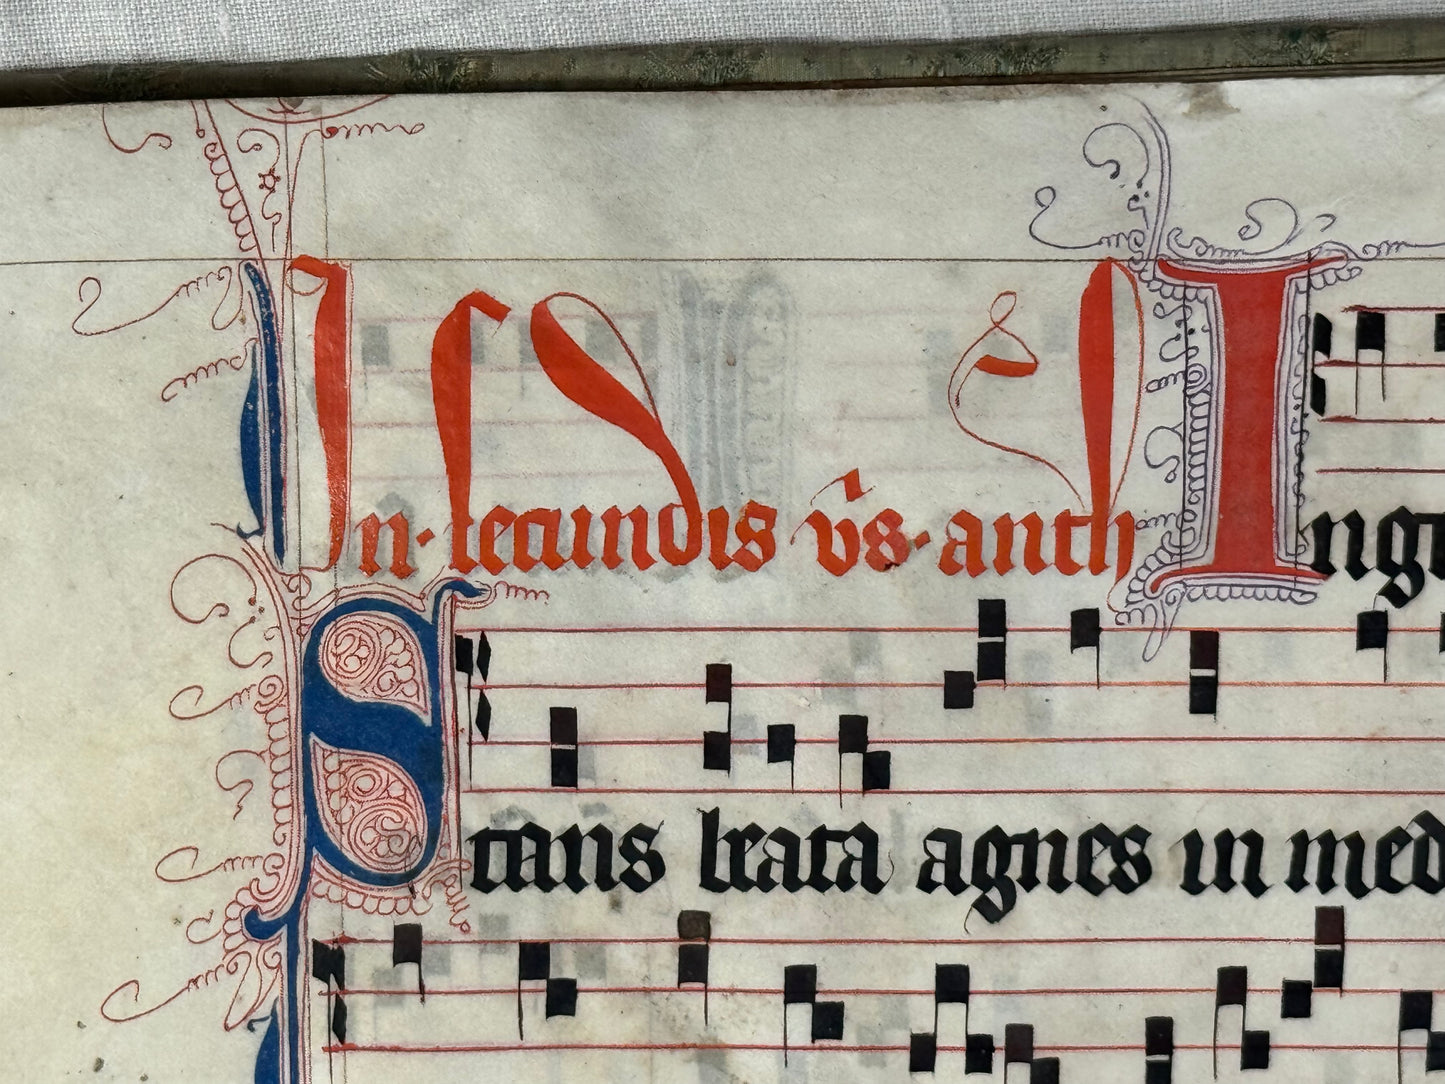 In · secundis v̄s · anth Ingr
Stans beata agnes in med